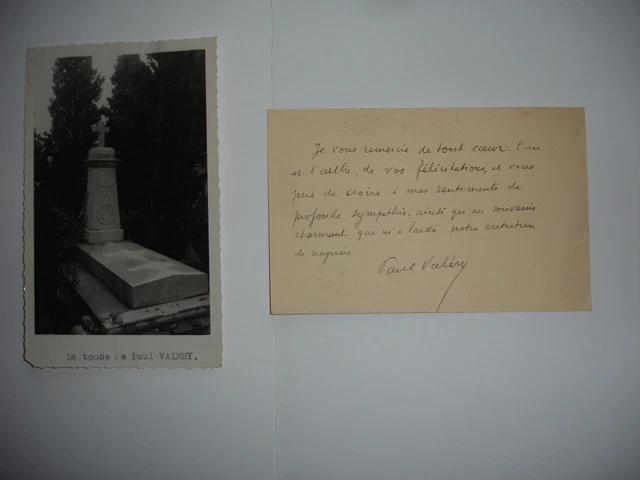 La tombe de Paul VALERY.
Je vous remercie de tout cœur, l'un
et l'autre, de vos félicitations, et vous
prie de croire à mes sentiments de
profonde sympathie, ainsi qu'au souvenir
charmant que m'a laissé notre entretien
de naguère.
Paul Valéry